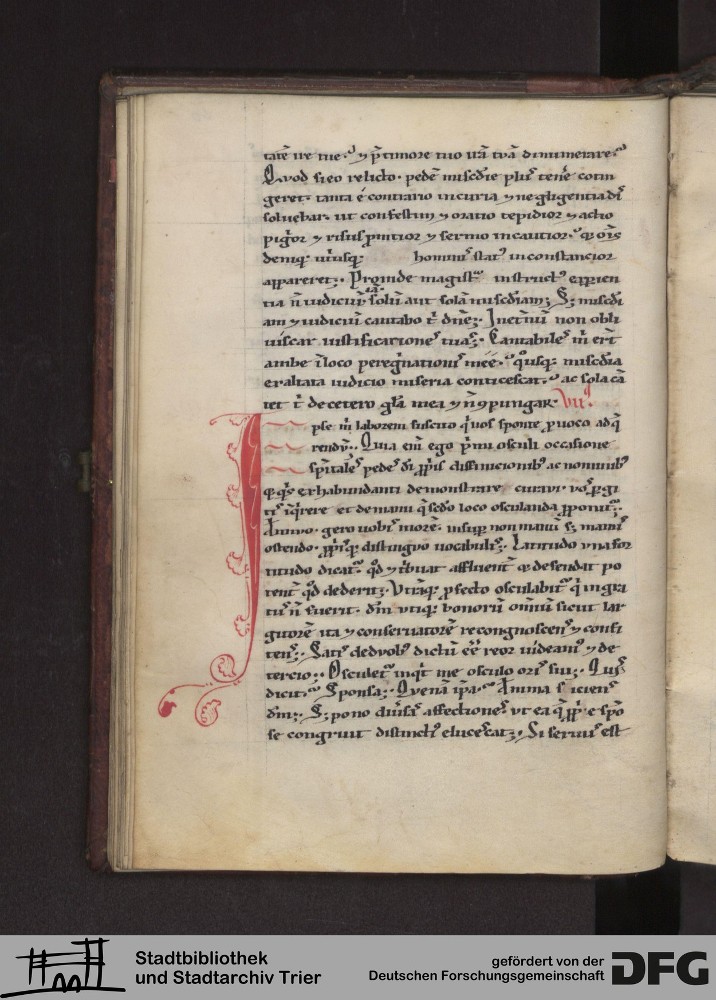 tatē ire tue· ⁊ p̄ timore tuo irā tuā dinumerare·
Quod si eo relicto· pedē miscd̄ie plus tenē e contin
geret· tanta ē contrario incuria ⁊ negligentia dis
soluebar· ut confestim ⁊ oratio tepidior ⁊ actio
pigrior ⁊ risus p̄mtior ⁊ sermo incautior· ⁊ om̄is
deniq; utriusq; hominis status inconstantior
appareret; Proinde magistra instructus experien
tia n̄ iudiciū iā solū aut solā miscd̄iam; S; miscd̄i
am ⁊ iudiciū cantabo t̄ dn̄e; In et̄nū non obli
uiscar iustificationes tuas; Cantabiles m̄ erunt
ambe ī loco peregrinationis mee· quousq; miscd̄ia
exaltata iudicio miseria conticescat· ac sola cā
tet t̄ de cetero gl̄a mea ⁊ n̄ 9pungar· VII
Ipse m̄ laborem suscito qi uos sponte p̄uoco ad q̄
rendū; Quia eni ego primi osculi occasione
sp̄itales pedes di propriis distinctionibus ac nominibus
exhabundanti demonstrare curaui· uos pergi
tis īq̄rere et de manu q̄ sed̄o loco osculanda proponitur·
Annuo· gero uobis morē· insup̄ non manū s; manus
ostendo· propriisq; distinguo uocabulis; Latitudo una for
titudo dicatur altera· qd̄ ⁊ tribuat affluenter ⁊ defendat po
tent̄ qd̄ dederit; Utrāq; profecto osculabitur q̄ ingra
tus n̄ fuerit· dm̄ utiq; bonorū omniū sicut lar
gitorē ita ⁊ conseruatorē recongnoscens ⁊ confi
tens; Satis de duobus dictū eē reor uideamus ⁊ de
tercio; Osculetur inqt me osculo oris sui; Quis
dicit· Sponsa; Quenā ipsa· Anima sitiens
dm̄; S; pono diuersas affectiones ut ea q̄ proprie sp̄o
se congruit distinctius elucescat; Si seruus est
Stadtbibliothek
und Stadtarchiv Trier
gefördert von der
Deutschen Forschungsgemeinschaft
DFG